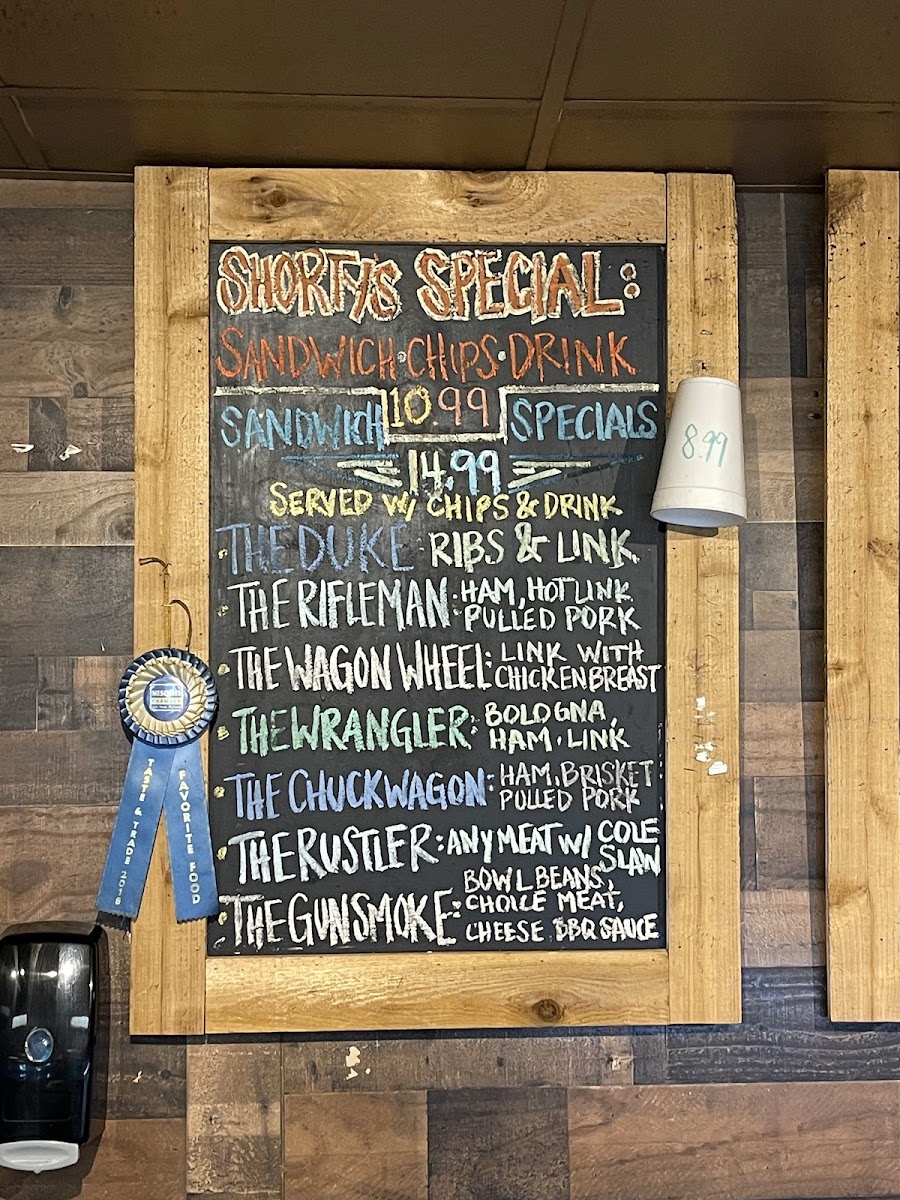 SHORTY'S SPECIAL:
SANDWICH·CHIPS·DRINK
10.99
SANDWICH SPECIALS
14.99
SERVED W/ CHIPS & DRINK
8.99
THE DUKE: RIBS & LINK
THE RIFLEMAN: HAM, HOT LINK
PULLED PORK
THE WAGON WHEEL: LINK WITH
CHICKEN BREAST
THE WRANGLER: BOLOGNA,
HAM, LINK
THE CHUCKWAGON: HAM, BRISKET
PULLED PORK
THE RUSTLER: ANY MEAT W/ COLE
SLAW
THE GUNSMOKE: BOWL BEANS,
CHOICE MEAT,
CHEESE, BBQ SAUCE
TASTE & TRADE 2018
FAVORITE FOOD